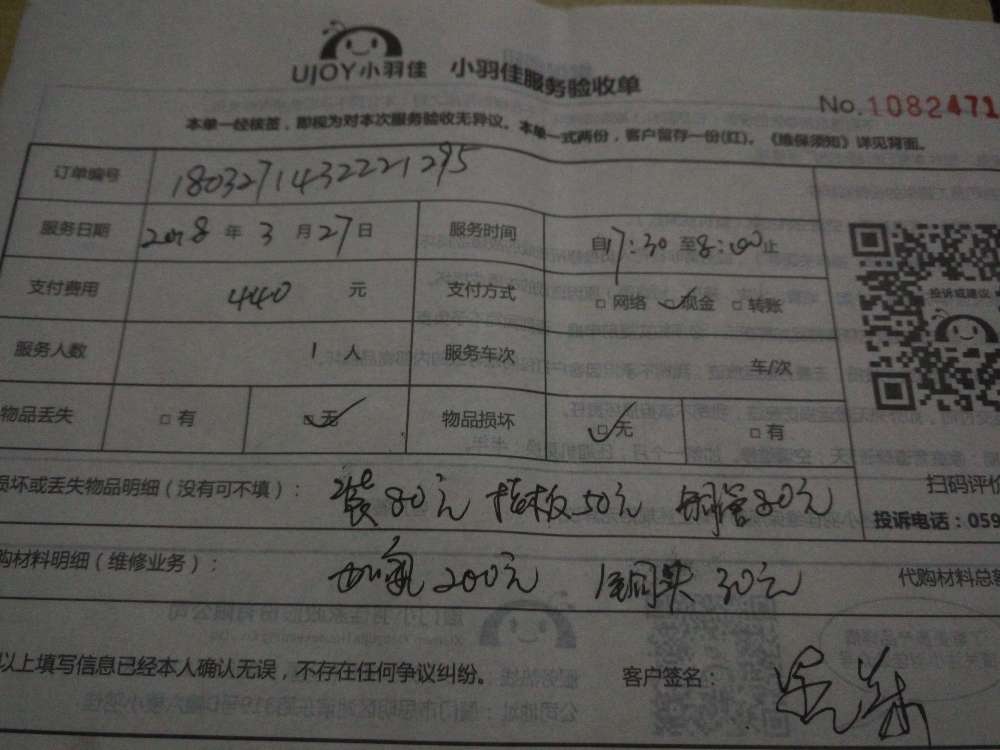 UJOY小羽佳 小羽佳服务验收单
No.1082471
本单一经核签，即视为对本次服务验收无异议。本单一式两份，客户留存一份(红)。《维保须知》详见背面。
订单编号 1803271432221295
服务日期 2018 年 3 月 27 日 服务时间 自17:30至8:00止
支付费用 440 元 支付方式 □网络 □现金 □转账
投诉或建议
服务人数 1 人 服务车次 车/次
物品丢失 □有 □无 物品损坏 □无 □有
扫码评价
损坏或丢失物品明细（没有可不填）： 装80元 板50元 铜管80元
投诉电话：059
购材料明细（维修业务）： 加氟200元 铜头30元 代购材料总
以上填写信息已经本人确认无误，不存在任何争议纠纷。 客户签名：